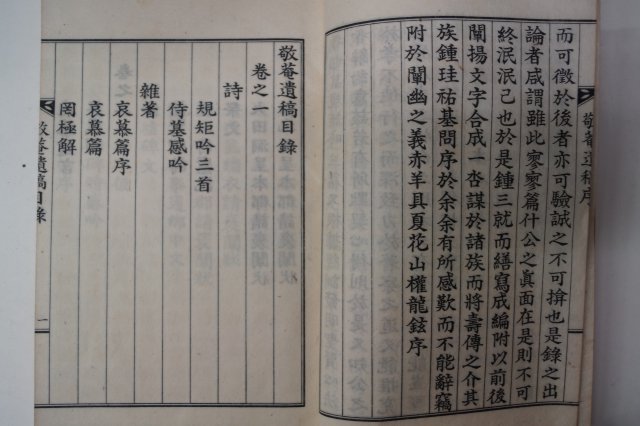 而可徵於後者亦可驗誠之不可揜也是錄之出
論者咸謂雖此寥寥篇什公之眞面在是則不可
終泯泯已也於是鍾三就而繕寫成編附以前後
闡揚文字合成一沓謀於諸族而將壽傳之介其
族鍾珪祐基問序於余余有所感歎而不能辭竊
附於闡幽之義赤羊具夏花山權龍鉉序
敬菴遺稿序
敬菴遺稿目錄
卷之一
詩
規矩吟三首
侍墓感吟
雜著
哀慕篇序
哀慕篇
罔極解
敬菴遺稿目錄
一